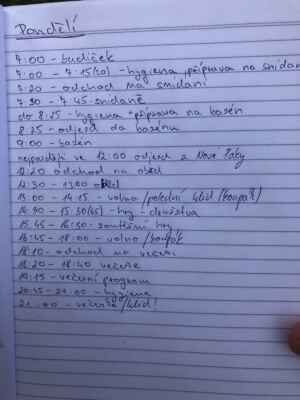 Pondělí
7:00 - budíček
7:00 - 7:15(20) - hygiena, příprava na snídani
7:20 - odchod na snídani
7:30 - 7:45 snídaně
do 8:25 - hygiena + příprava na bazén
8:25 - odjezd do bazénu
9:00 - bazén
nejpozději ve 12:00 odjezd z Nové Paky
12:20 odchod na oběd
12:30 - 13:00 oběd
13:00 - 14:15 - volno/polední klid
15:45 - 16:30 - soutěžní hry
16:45 - 18:00 - volno
18:10 - odchod na večeři
18:20 - 18:40 večeře
19:15 - večerní program
20:45 - 21:00 - hygiena
21:00 - večerka/klid!